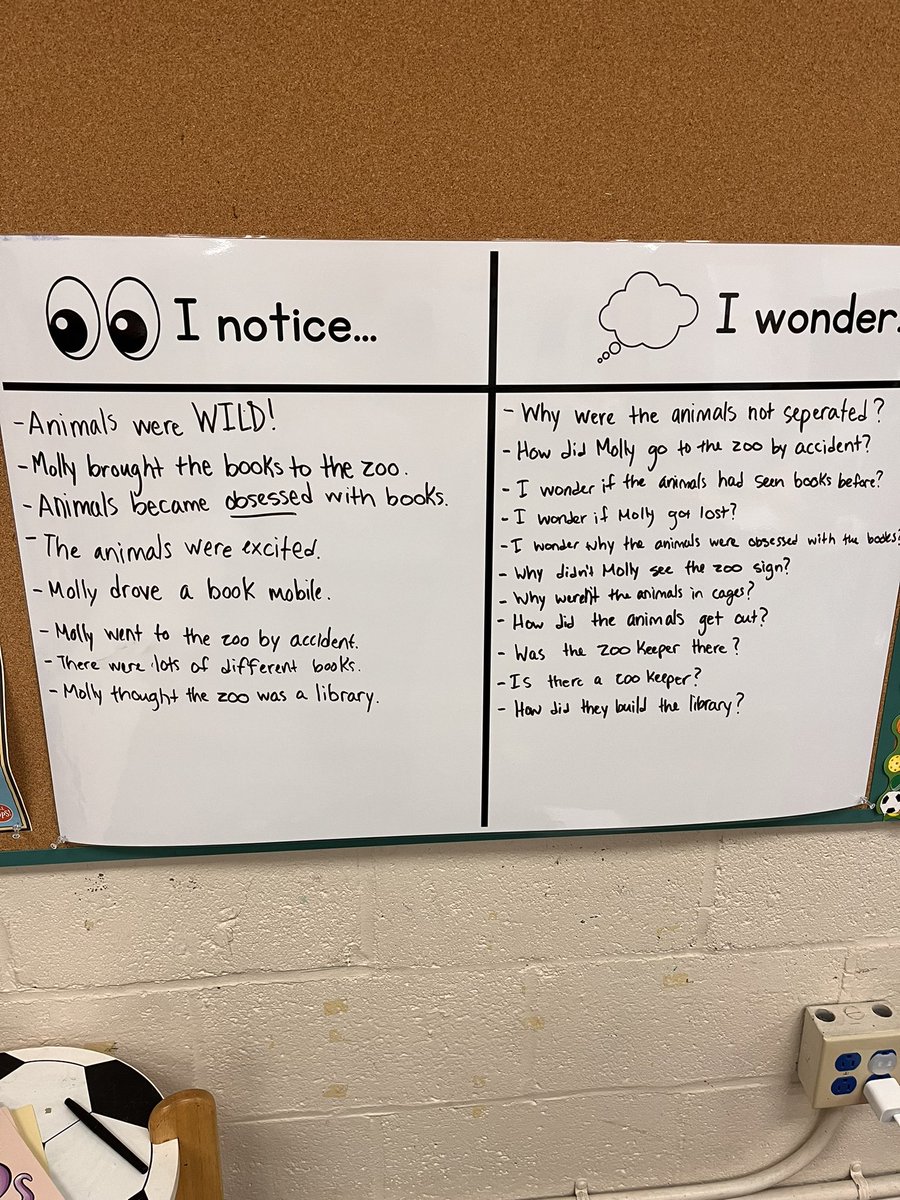 I notice...
- Animals were WILD!
- Molly brought the books to the zoo.
- Animals became obsessed with books.
- The animals were excited.
- Molly drove a book mobile.
- Molly went to the zoo by accident.
- There were lots of different books.
- Molly thought the zoo was a library.
I wonder.
- Why were the animals not seperated?
- How did Molly go to the zoo by accident?
- I wonder if the animals had seen books before?
- I wonder if Molly got lost?
- I wonder why the animals were obsessed with the books?
- Why didn't Molly see the zoo sign?
- Why weren't the animals in cages?
- How did the animals get out?
- Was the zoo keeper there?
- Is there a zoo keeper?
- How did they build the library?